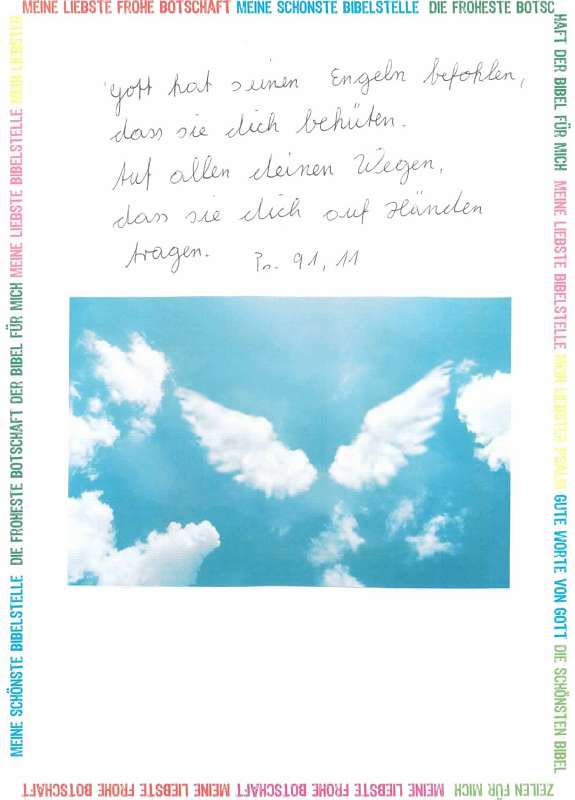 MEINE LIEBSTE FROHE BOTSCHAFT MEINE SCHÖNSTE BIBELSTELLE DIE FROHESTE BOTSC
HAFT DER BIBEL FÜR MICH MEINE LIEBSTE BIBELSTELLE MEIN LIEBSTER PSALM GUTE WORTE VON GOTT DIE SCHÖNSTEN BIBEL
ZEILEN FÜR MICH MEINE LIEBSTE FROHE BOTSCHAFT MEINE LIEBSTE FROHE BOTSCHAFT
MEINE SCHÖNSTE BIBELSTELLE DIE FROHESTE BOTSCHAFT DER BIBEL FÜR MICH MEINE LIEBSTE BIBELSTELLE MEIN LIEBSTER
Gott hat seinen Engeln befohlen,
dass sie dich behüten.
Auf allen deinen Wegen,
dass sie dich auf Händen
tragen. Ps. 91, 11